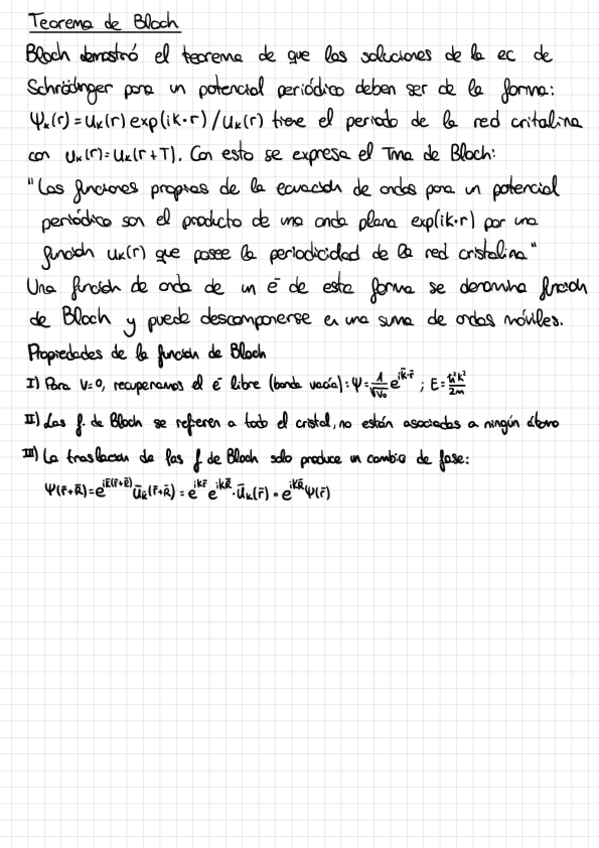 Teorema de Bloch
Bloch demostró el teorema de que las soluciones de la ec de
Schrödinger para un potencial periódico deben ser de la forma:
Ψₖ(r)=uₖ(r)exp(ik·r)/uₖ(r) tiene el periodo de la red critalina
con uₖ(r)=uₖ(r+T). Con esto se expresa el Tma de Bloch:
"Las funciones propias de la ecuación de ondas para un potencial
periódico son el producto de una onda plana exp(ik·r) por una
función uₖ(r) que posee la periodicidad de la red cristalina"
Una función de onda de un e⁻ de esta forma se denomina función
de Bloch y puede descomponerse en una suma de ondas móviles.
Propiedades de la función de Bloch
I) Para V=0, recuperamos el e⁻ libre (banda vacía): Ψ=1/√V₀ e^{ik̄·r̄} ; E=ħ²k²/2m
II) Las f. de Bloch se refieren a todo el cristal, no están asociadas a ningún átomo
III) La traslacion de las f de Bloch solo produce un cambio de fase:
Ψ(r̄+R̄)=e^{ik̄(r̄+R̄)} ūₖ(r̄+R̄)=e^{ikr̄} e^{ikR̄}·ūₖ(r̄)=e^{ikR̄}Ψ(r̄)